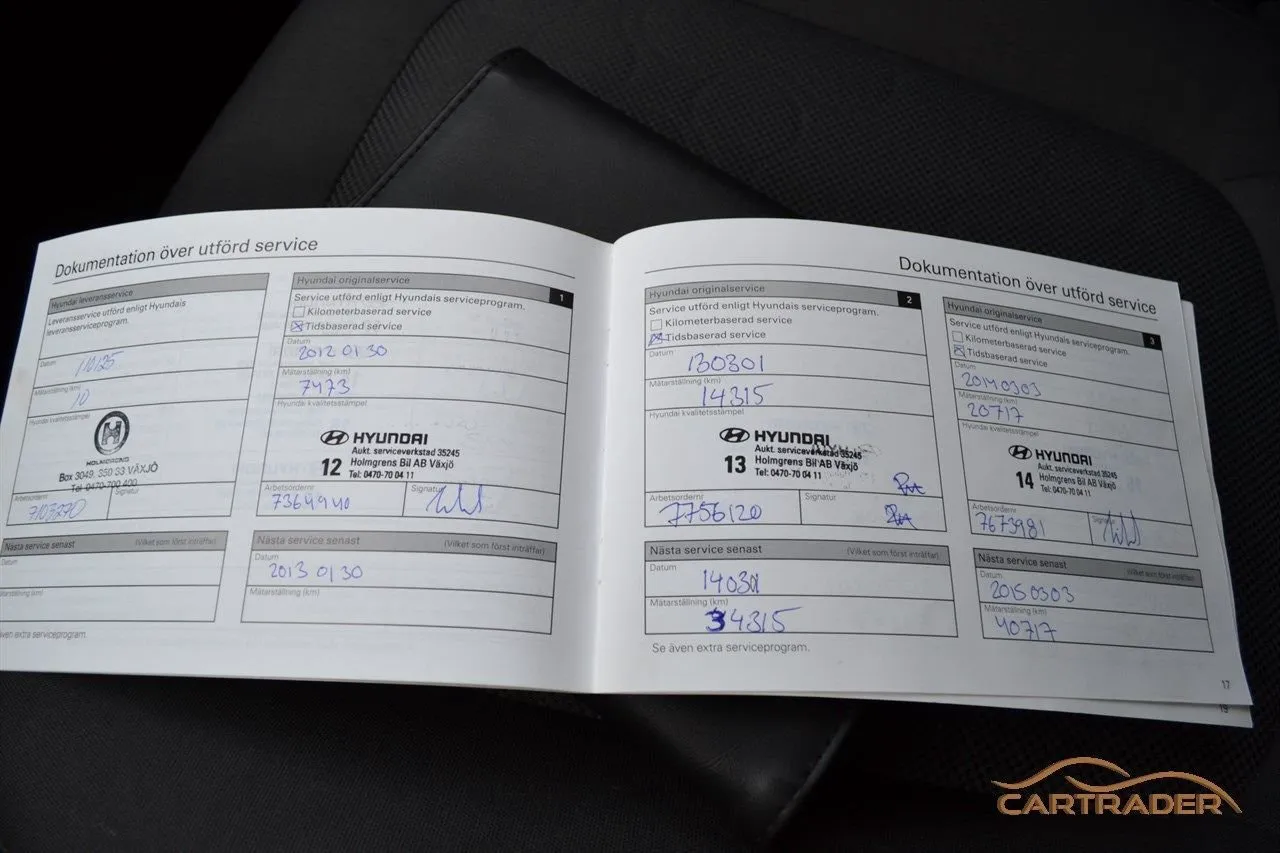 Dokumentation över utförd service
Hyundai leveransservice
Leveransservice utförd enligt Hyundais
leveransserviceprogram.
Datum
110125
Mätarställning (km)
10
Hyundai kvalitetsstämpel
H
HOLMGRENS
Box 3049, 350 33 VÄXJÖ
Tel 0470-700 400
Arbetsordernr
Signatur
7103270
Nästa service senast (Vilket som först inträffar)
Datum
Mätarställning (km)
även extra serviceprogram.
Hyundai originalservice
1
Service utförd enligt Hyundais serviceprogram.
Kilometerbaserad service
Tidsbaserad service
Datum
2012 01 30
Mätarställning (km)
7473
Hyundai kvalitetsstämpel
HYUNDAI
Aukt. serviceverkstad 35245
12 Holmgrens Bil AB Växjö
Tel: 0470-70 04 11
Arbetsordernr
Signatur
7364940
Nästa service senast (Vilket som först inträffar)
Datum
2013 01 30
Mätarställning (km)
Dokumentation över utförd service
Hyundai originalservice
2
Service utförd enligt Hyundais serviceprogram.
Kilometerbaserad service
Tidsbaserad service
Datum
130301
Mätarställning (km)
14315
Hyundai kvalitetsstämpel
HYUNDAI
Aukt. serviceverkstad 35245
13 Holmgrens Bil AB Växjö
Tel: 0470-70 04 11
Arbetsordernr
Signatur
7756120
Nästa service senast (Vilket som först inträffar)
Datum
140301
Mätarställning (km)
34315
Se även extra serviceprogram.
Hyundai originalservice
3
Service utförd enligt Hyundais serviceprogram.
Kilometerbaserad service
Tidsbaserad service
Datum
20140303
Mätarställning (km)
20717
Hyundai kvalitetsstämpel
HYUNDAI
Aukt. serviceverkstad 35245
14 Holmgrens Bil AB Växjö
Tel: 0470-70 04 11
Arbetsordernr
Signatur
7673981
Nästa service senast (Vilket som först inträffar)
Datum
20150303
Mätarställning (km)
40717
17
19
CARTRADER